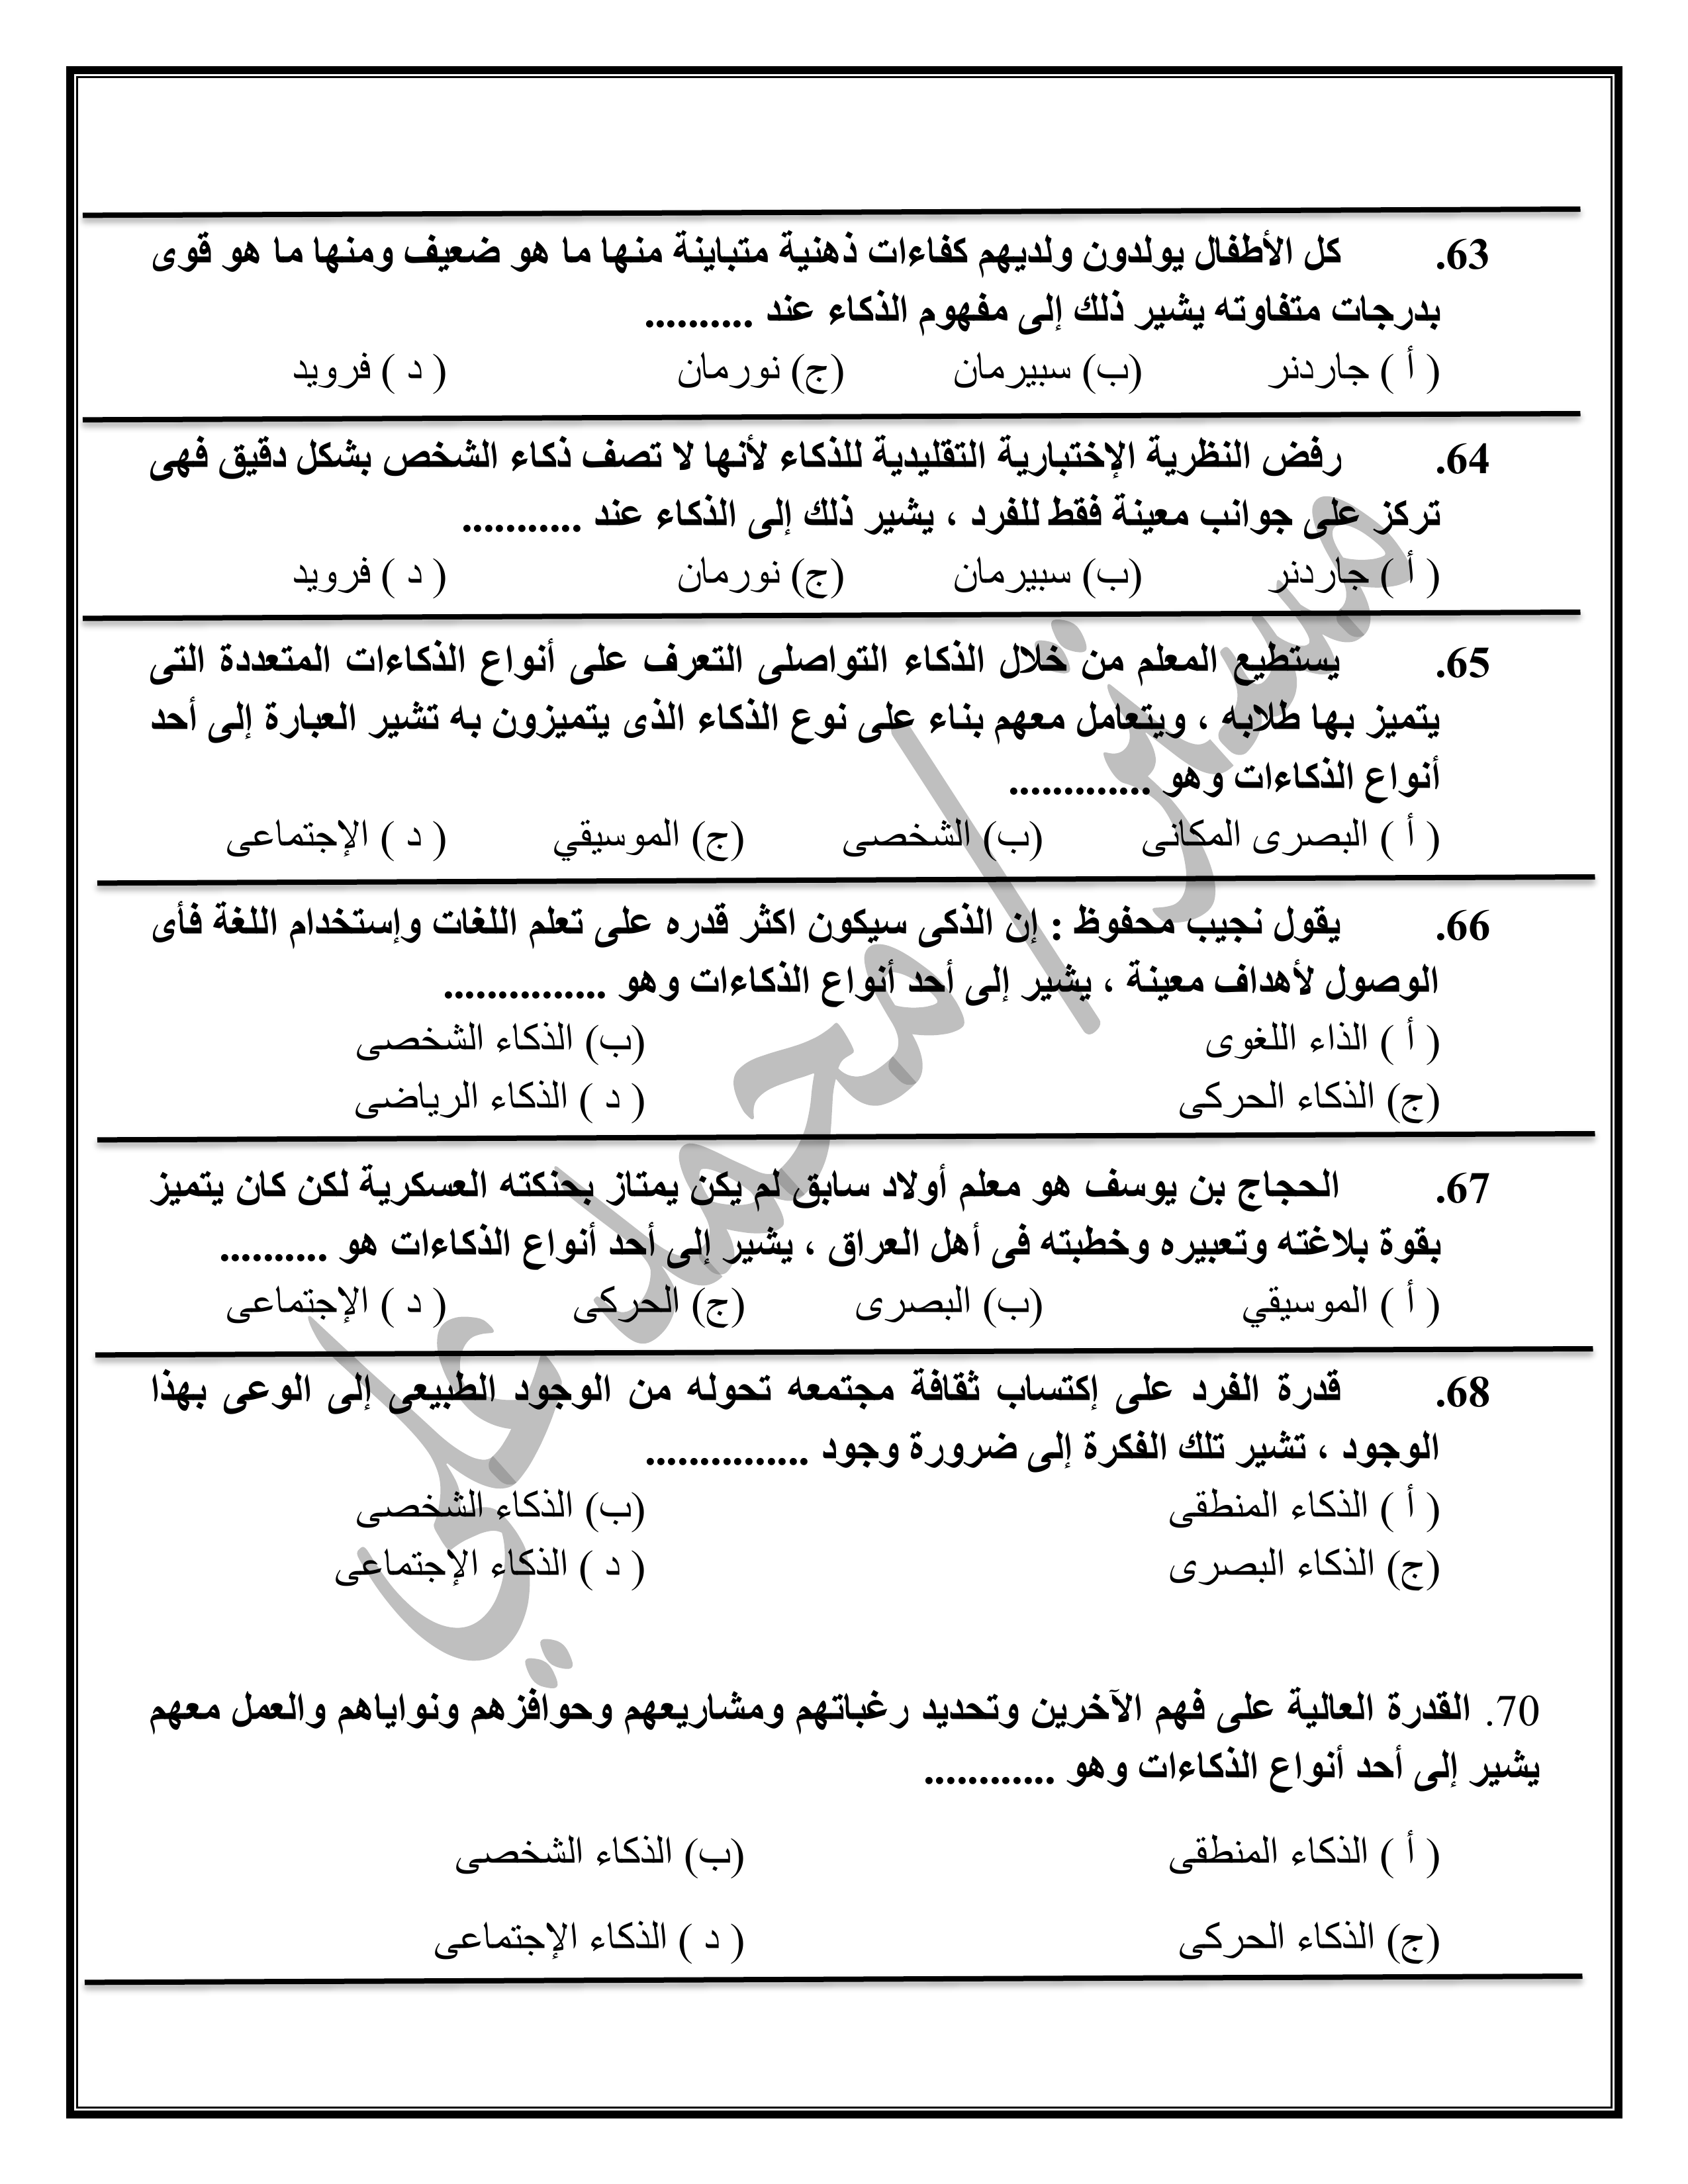 63. كل الأطفال يولدون ولديهم كفاءات ذهنية متباينة منها ما هو ضعيف ومنها ما هو قوى
بدرجات متفاوته يشير ذلك إلى مفهوم الذكاء عند ..........
( أ ) جاردنر (ب) سبيرمان (ج) نورمان ( د ) فرويد
64. رفض النظرية الإختبارية التقليدية للذكاء لأنها لا تصف ذكاء الشخص بشكل دقيق فهى
تركز على جوانب معينة فقط للفرد ، يشير ذلك إلى الذكاء عند ...........
( أ ) جاردنر (ب) سبيرمان (ج) نورمان ( د ) فرويد
65. يستطيع المعلم من خلال الذكاء التواصلى التعرف على أنواع الذكاءات المتعددة التى
يتميز بها طلابه ، ويتعامل معهم بناء على نوع الذكاء الذى يتميزون به تشير العبارة إلى أحد
أنواع الذكاءات وهو .............
( أ ) البصرى المكانى (ب) الشخصى (ج) الموسيقي ( د ) الإجتماعى
66. يقول نجيب محفوظ : إن الذكى سيكون اكثر قدره على تعلم اللغات وإستخدام اللغة فأى
الوصول لأهداف معينة ، يشير إلى أحد أنواع الذكاءات وهو ...............
( أ ) الذاء اللغوى (ب) الذكاء الشخصى
(ج) الذكاء الحركى ( د ) الذكاء الرياضى
67. الحجاج بن يوسف هو معلم أولاد سابق لم يكن يمتاز بحنكته العسكرية لكن كان يتميز
بقوة بلاغته وتعبيره وخطبته فى أهل العراق ، يشير إلى أحد أنواع الذكاءات هو ..........
( أ ) الموسيقي (ب) البصرى (ج) الحركى ( د ) الإجتماعى
68. قدرة الفرد على إكتساب ثقافة مجتمعه تحوله من الوجود الطبيعى إلى الوعى بهذا
الوجود ، تشير تلك الفكرة إلى ضرورة وجود ...............
( أ ) الذكاء المنطقى (ب) الذكاء الشخصى
(ج) الذكاء البصرى ( د ) الذكاء الإجتماعى
70. القدرة العالية على فهم الآخرين وتحديد رغباتهم ومشاريعهم وحوافزهم ونواياهم والعمل معهم
يشير إلى أحد أنواع الذكاءات وهو ............
( أ ) الذكاء المنطقى (ب) الذكاء الشخصى
(ج) الذكاء الحركى ( د ) الذكاء الإجتماعى
مستر/محمد علي